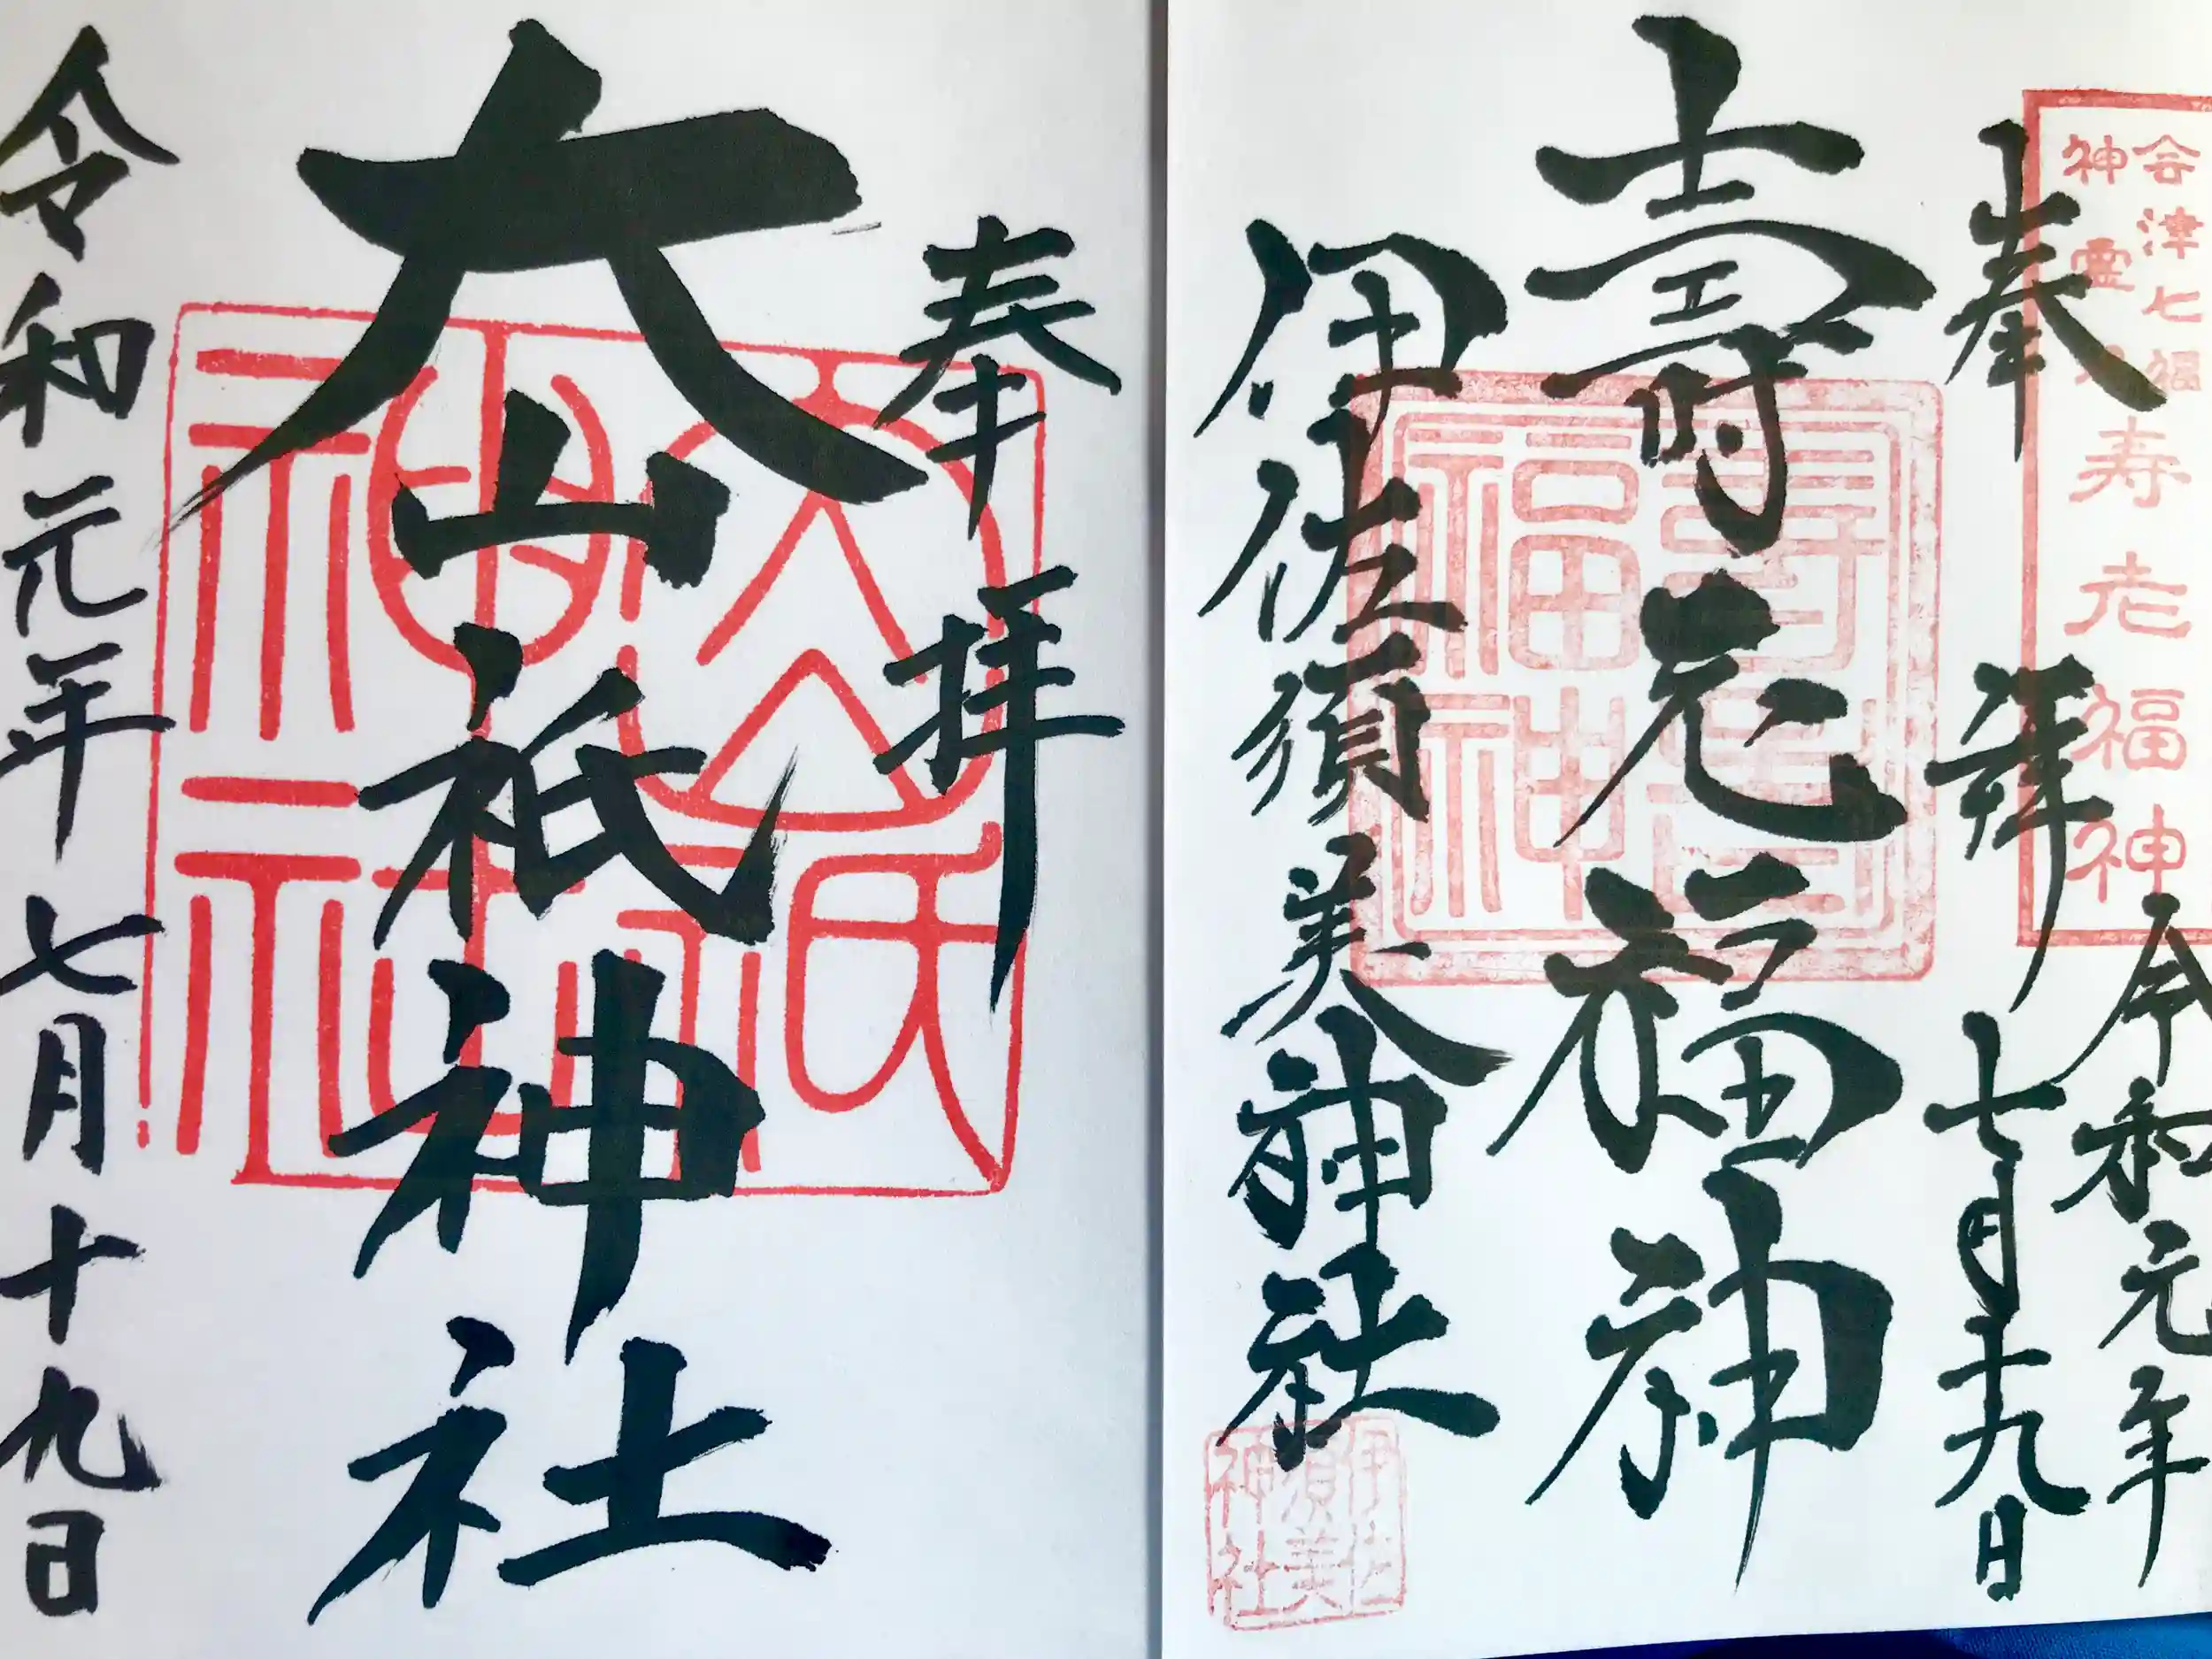 会津七福
神霊
寿老福神
奉拜
令和元年
七月十九日
壽老福神
壽老福神
伊佐須美神社
伊佐須美神社
奉拝
大山祇神社
大山祇神社
令和元年七月十九日